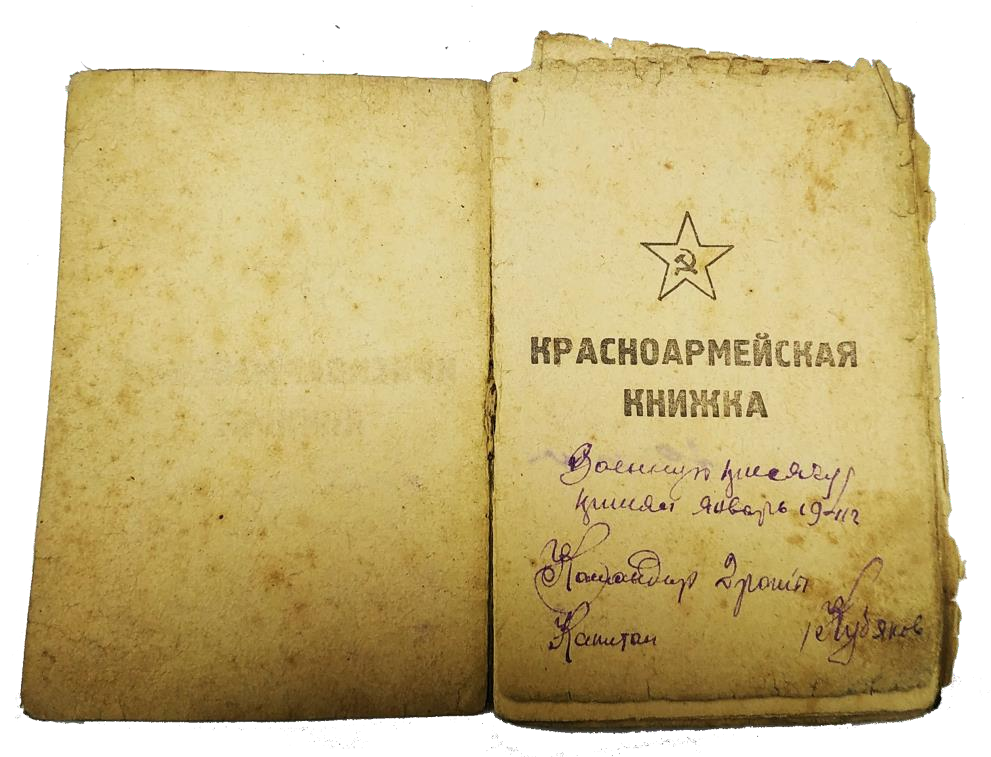 КРАСНОАРМЕЙСКАЯ
КНИЖКА
Военную присягу
принял январь 1941г
Командир
Капитан